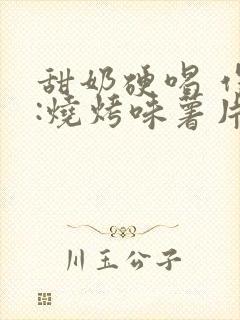 甜奶硬唱
:燒烤味薯片
川玉公子